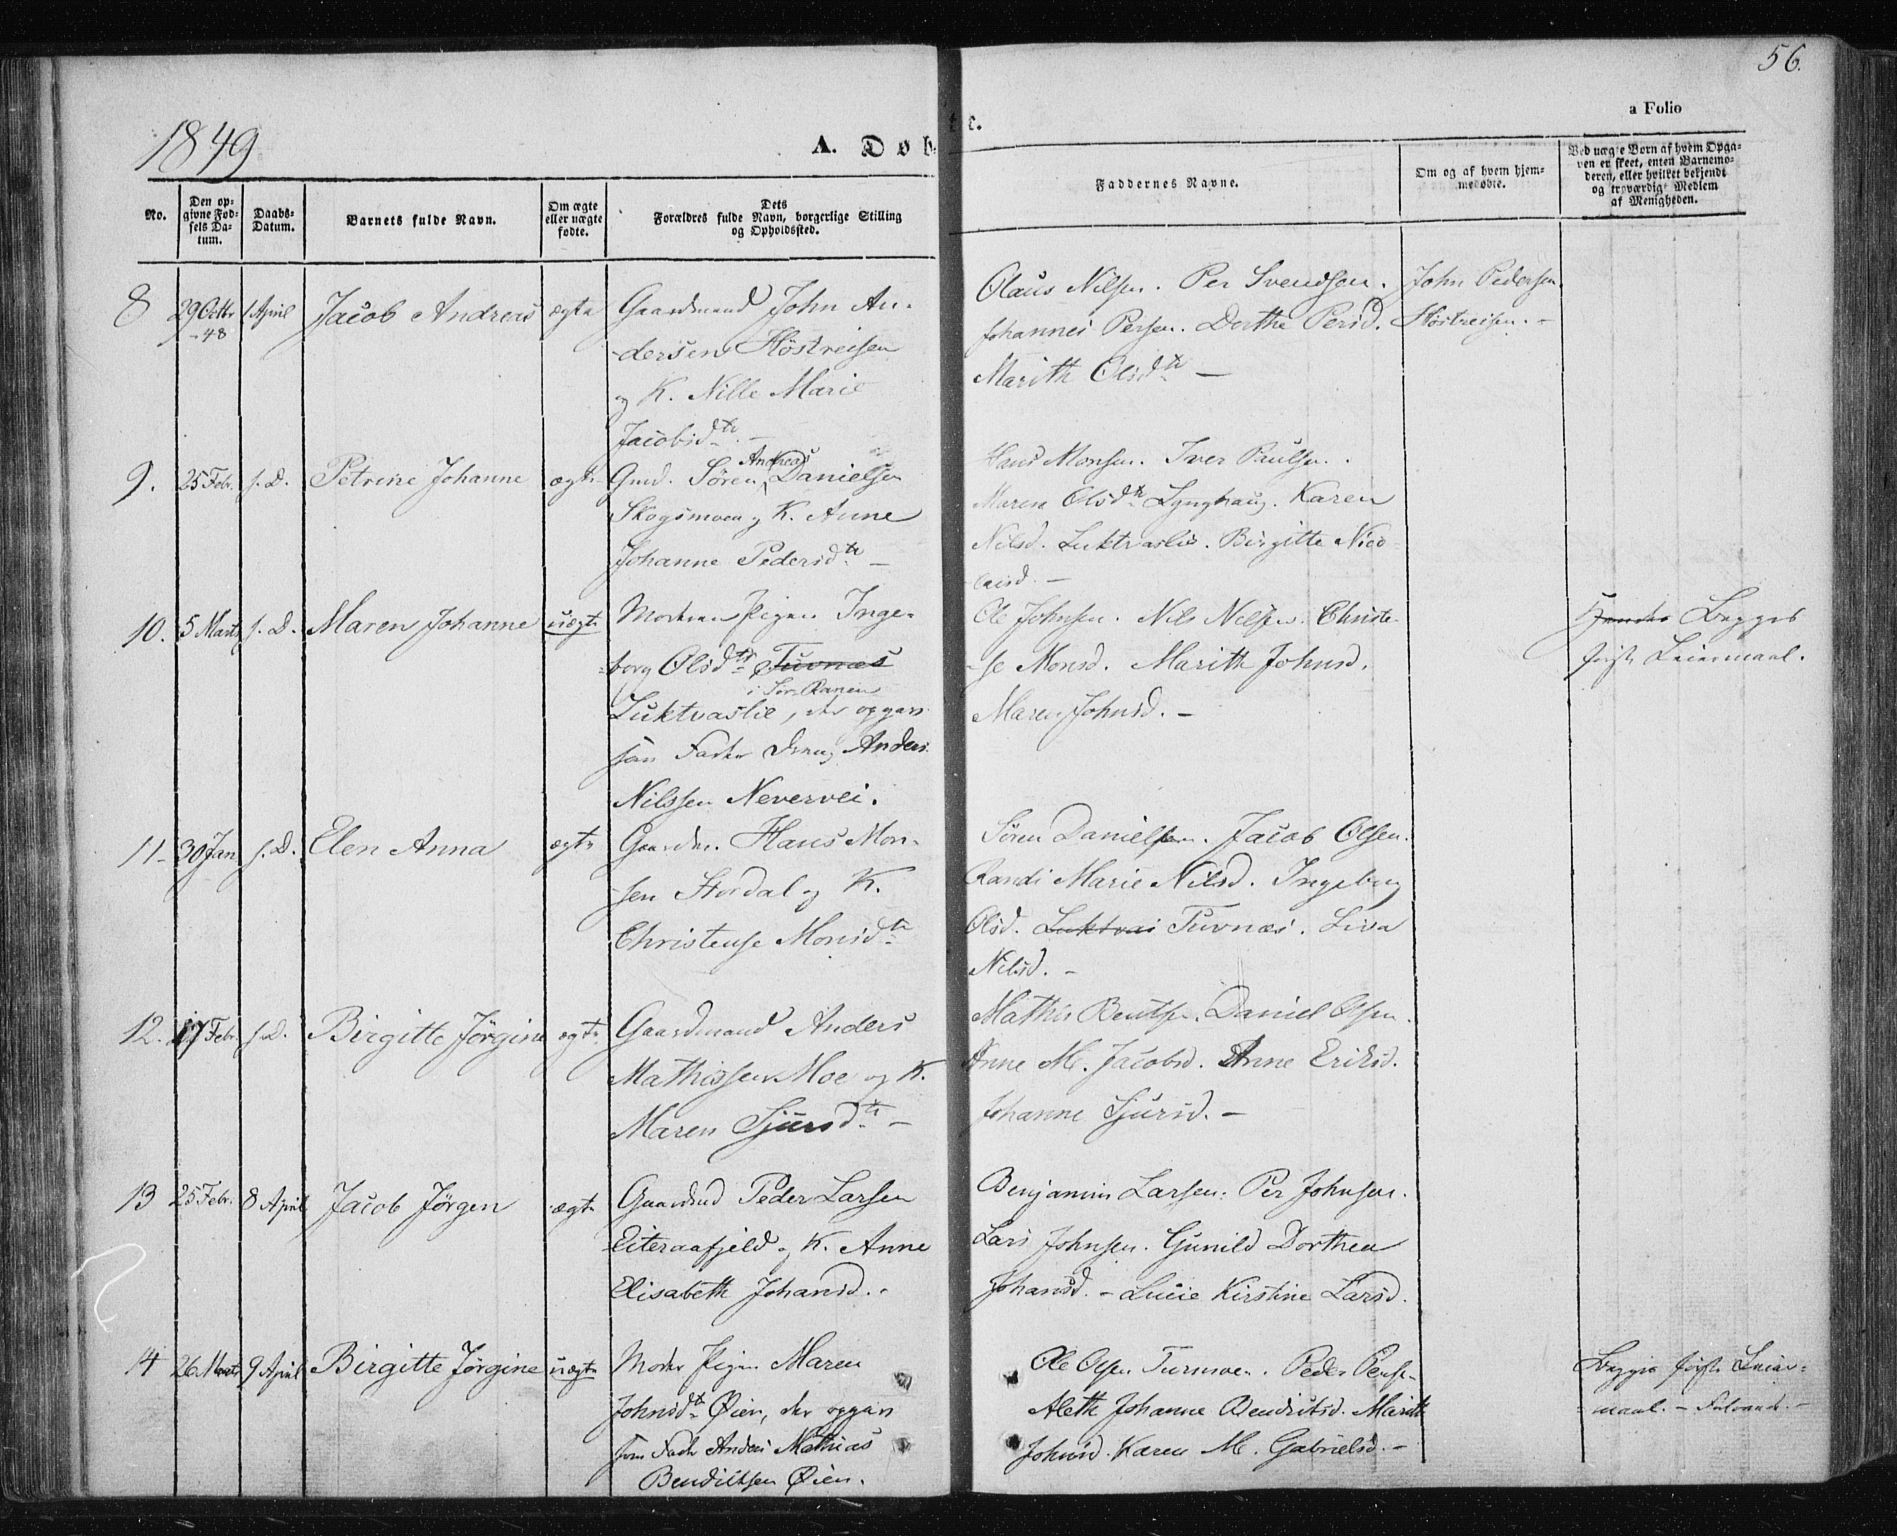 56.
a Folio
1849
A. Døbte.
No.
Den opgivne Fødsels Datum.
Daabs-Datum.
Barnets fulde Navn.
Om ægte eller uægte fødte.
Dets Forældres fulde Navn, borgerlige Stilling og Opholdssted.
Faddernes Navne.
Om og af hvem hjemmedøbte.
Ved uægte Børn af hvem Opgaven er skeet, enten Barnemoderen, eller hvilket bekjendt og troværdigt Medlem af Menigheden.
8 29 Octbr -48 1 April Jacob Andreas ægte Gaardmand John An-
dersen Høstreisen
og K. Nille Marie
Jacobsdtr. –
Olaus Nilsen. Per Svendsen.
Johannes Persen. Dorthe Persd.
Marith Olsdtr –
John Pedersen
Høstreisen. –
9. 25 Febr. s. D. Petrine Johanne ægte Gmd. Søren Andreas Danielsen
Skogsmoen og K. Anne
Johanne Pedersdtr –
Hans Monsen. Iver Paulsen.
Maren Olsdtr Lynghaug. Karen
Nilsd. Luktvaslie. Birgitte Nico-
laisd. –
10. 5 Marts s. D. Maren Johanne uægte Moderen Pigen Inge-
borg Olsdtr Tuvnæs
i Sør-Ranen
Luktvaslie, der opgav
som Fader Dreng Anders
Nilssen Nevervei.
Ole Johnsen. Nils Nelsen. Christe-
se Monsd. Marith Johnsd.
Maren Johnsd. –
Begges
første Leiermaal.
11- 30 Jan s. D. Elen Anna ægte Gaardm. Hans Mon-
sen Stordal og K.
Christense Monsdtr
Søren Danielsen. Jacob Olsen.
Randi Marie Nilsd. Ingeborg
Olsd. Luktvas Tuvnæs. Lisa
Nilsd. –
12. 17 Febr. s. D. Birgitte Jørgine ægte Gaardmand Anders
Mathissen Moe og K.
Maren Sjursdtr –
Mathis Bentsen. Daniel Olsen.
Anne M. Jacobsd. Anne Eriksd.
Johanne Sjursd. –
13 25 Febr. 8 April Jacob Jørgen ægte Gaardmd Peder Larsen
Eiteraafjeld og K. Anne
Elisabeth Johansd. –
Benjamin Larsen. Per Johnsen.
Lars Johnsen. Gunild Dorthea
Johansd. – Lucie Kirstine Larsd.
14 26 Marts 9 April Birgitte Jørgine uægte Moder Pigen Maren
Johnsdtr Øien, der opgav
som Fader Anders Mathias
Bendiktsen Øien.
Ole Olsen Turmoen. Peder
Aleth Johanne Bendiktsd. Marith
Johnsd. Karen M. Gabrielsd. –
Begges første Leier-
maal. –